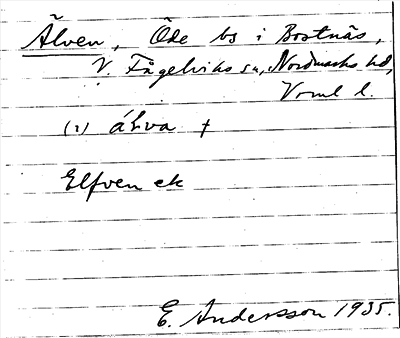 Älven, Öde bs i Bostnäs,
V. Fågelviks sn, Nordmarks hd,
Vrml l.
(1) áLva †
Elfven ek
E. Andersson 1935.